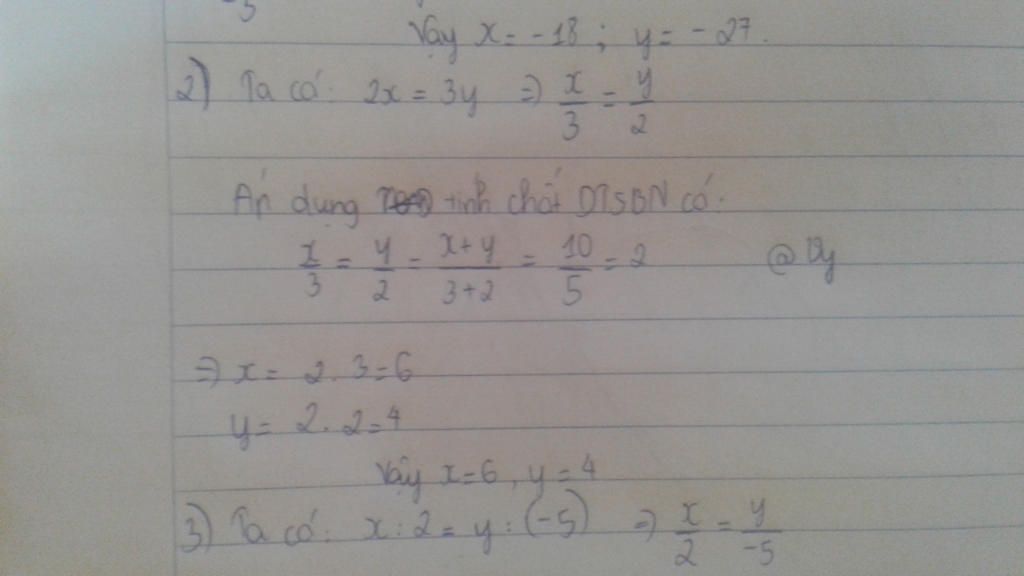 3
Vậy x = -18 ; y = -27.
2) Ta có: 2x = 3y => x/3 = y/2
Áp dụng tính chất DTSBN có:
x/3 = y/2 = x+y/3+2 = 10/5 = 2 @ Vy
=> x = 2. 3 = 6
y = 2. 2 = 4
Vậy x = 6, y = 4
3) Ta có: x : 2 = y : (-5) => x/2 = y/-5